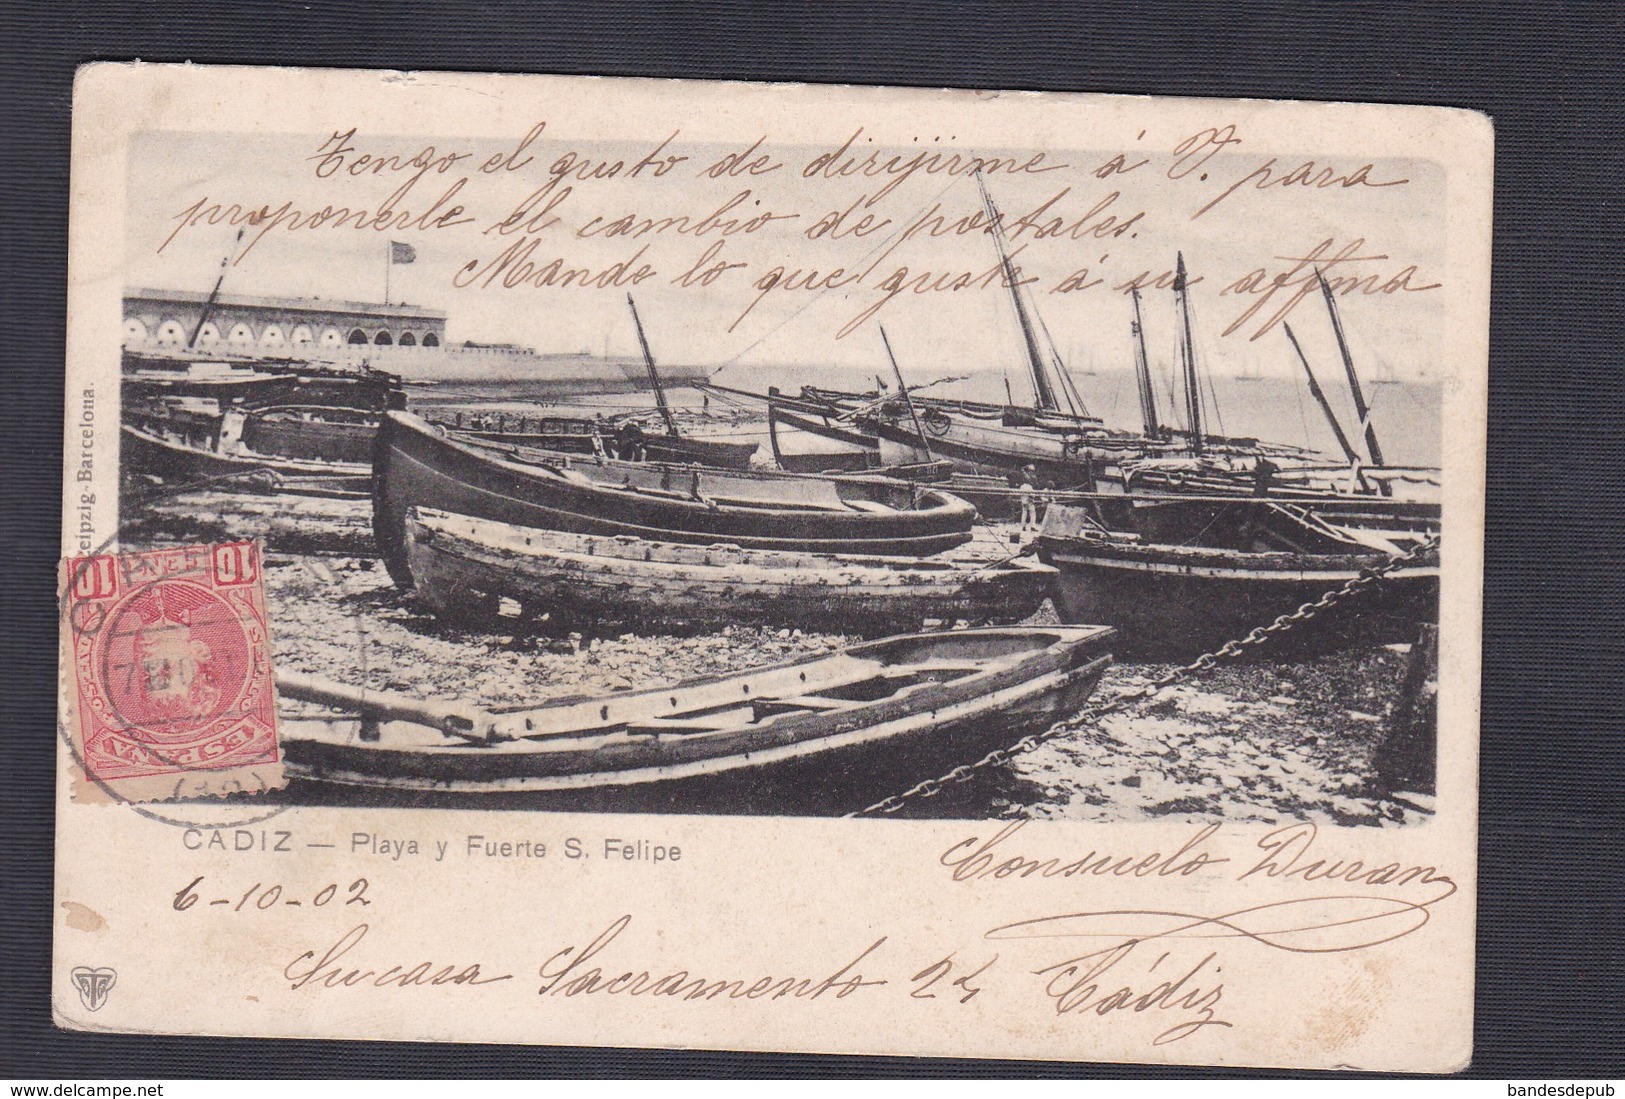 Tengo el gusto de dirijirme á V. para
proponerle el cambio de postales.
Mande lo que guste á su affma
Leipzig-Barcelona.
10 10
ESPAÑA
CADIZ — Playa y Fuerte S. Felipe
Consuelo Duran
6-10-02
Su casa Sacramento 24 Cádiz
bandesdepub